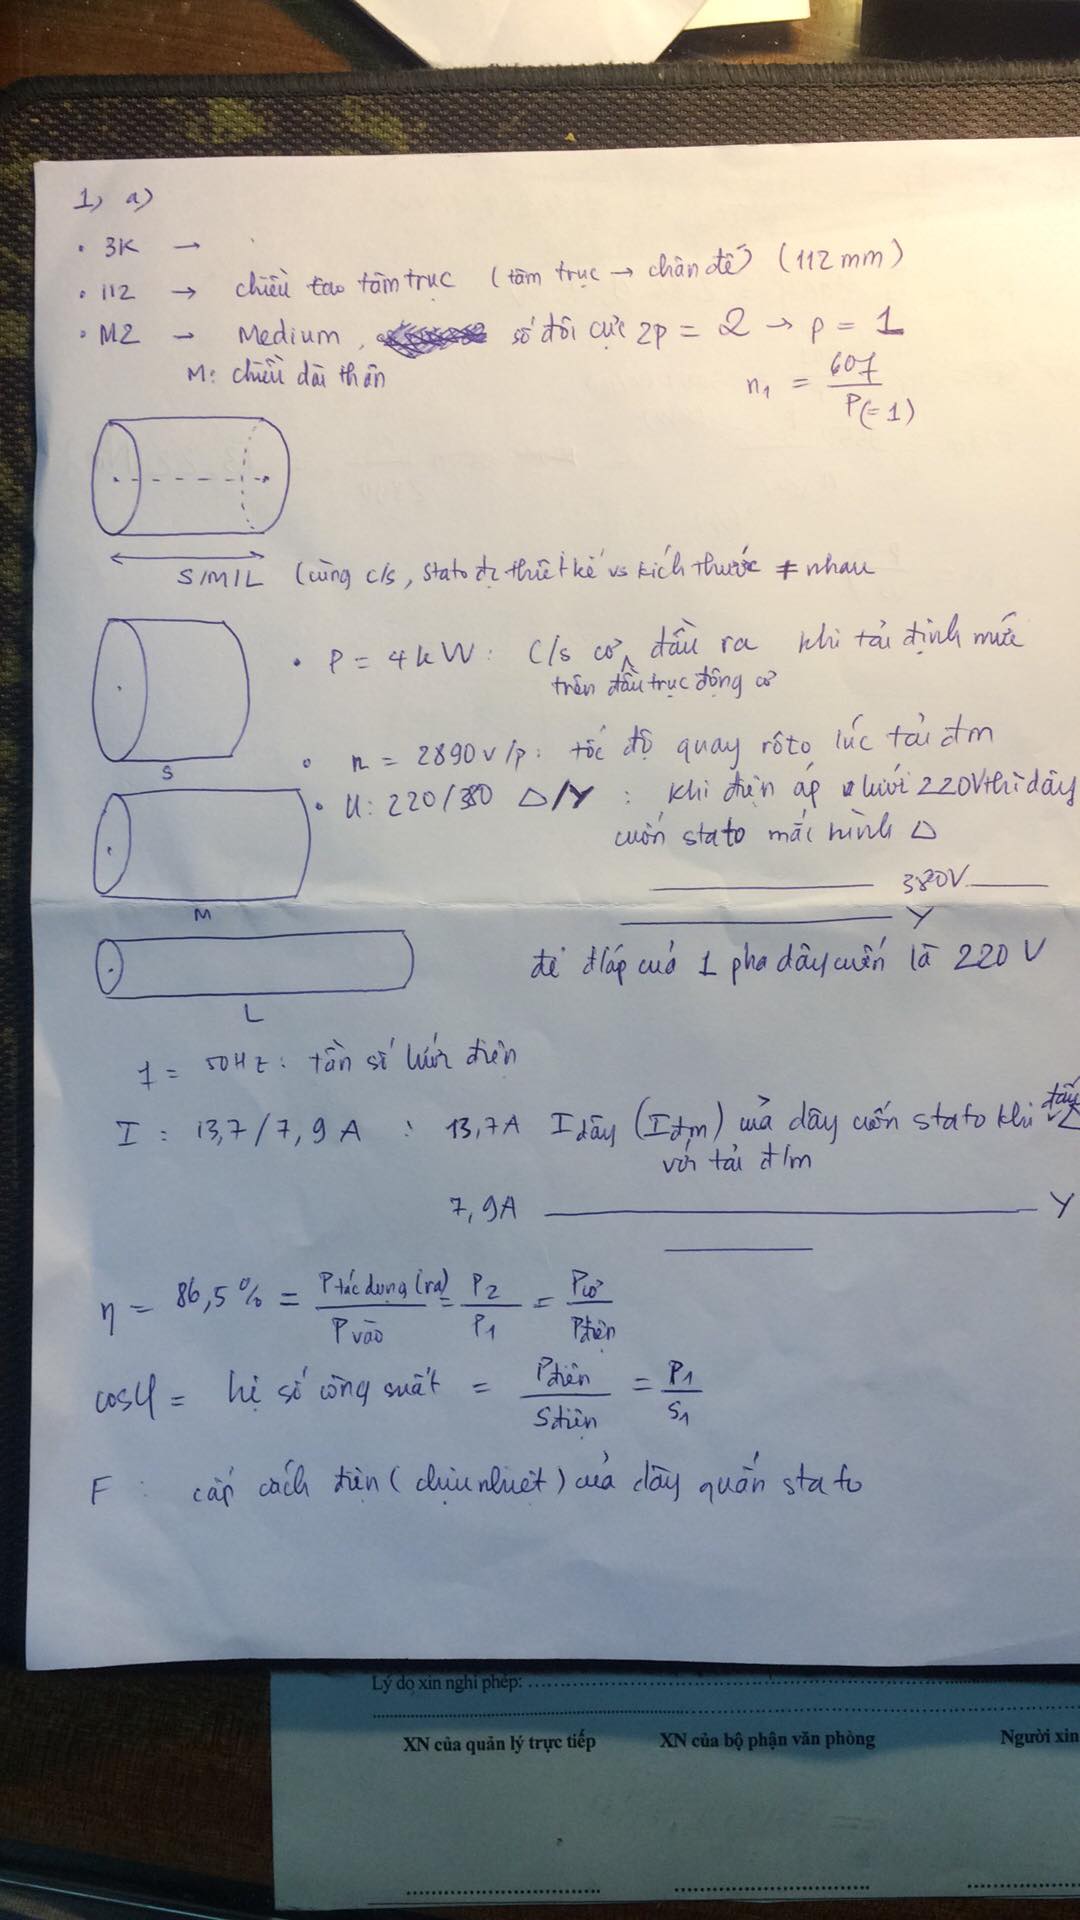 1, a)
• 3K →
• 112 → chiều cao tâm trục (tâm trục → chân đế) (112 mm)
• M2 → Medium, số đôi cực 2p = 2 → p = 1
M: chiều dài thân
n₁ = 60f / P(=1)
S/M/L (cùng c/s, stato đc thiết kế vs kích thước ≠ nhau
• P = 4 kW: C/s cơ đầu ra khi tải định mức
trên đầu trục động cơ
S
• n = 2890 v/p: tốc độ quay rôto lúc tải đm
• U: 220/380 Δ/Y : khi điện áp lưới 220V thì dây
cuốn stato mắc hình Δ
380V
M
Y
để đ/áp của 1 pha dây cuốn là 220 V
L
f = 50Hz: tần số lưới điện
I = 13,7/7,9A : 13,7A I dây (I đm) của dây cuốn stato khi đấu Δ
với tải đ/m
7,9A Y
η = 86,5% = P tác dụng (ra) / P vào = P₂ / P₁ = P cơ / P điện
cosφ = hệ số công suất = P điện / S điện = P₁ / S₁
F : cấp cách điện (chịu nhiệt) của dây quấn stato
Lý do xin nghỉ phép:
XN của quản lý trực tiếp XN của bộ phận văn phòng Người xin